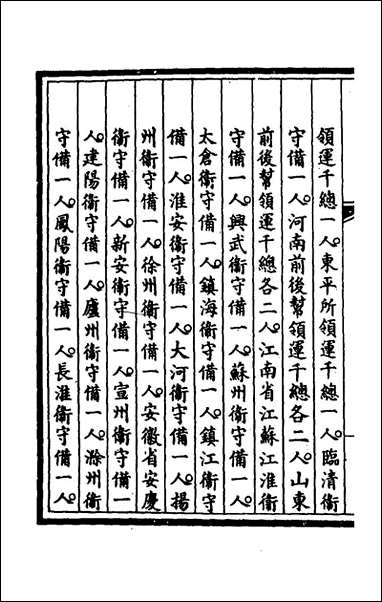 領運千總一人東平所領運千總一人臨清衞
守備一人河南前後幫領運千總各二人山東
前後幫領運千總各二人江南省江蘇江淮衞
守備一人興武衞守備一人蘇州衞守備一人
太倉衞守備一人鎮海衞守備一人鎮江衞守
備一人淮安衞守備一人大河衞守備一人揚
州衞守備一人徐州衞守備一人安徽省安慶
衞守備一人新安衞守備一人宣州衞守備一
人建陽衞守備一人廬州衞守備一人滁州衞
守備一人鳳陽衞守備一人長淮衞守備一人